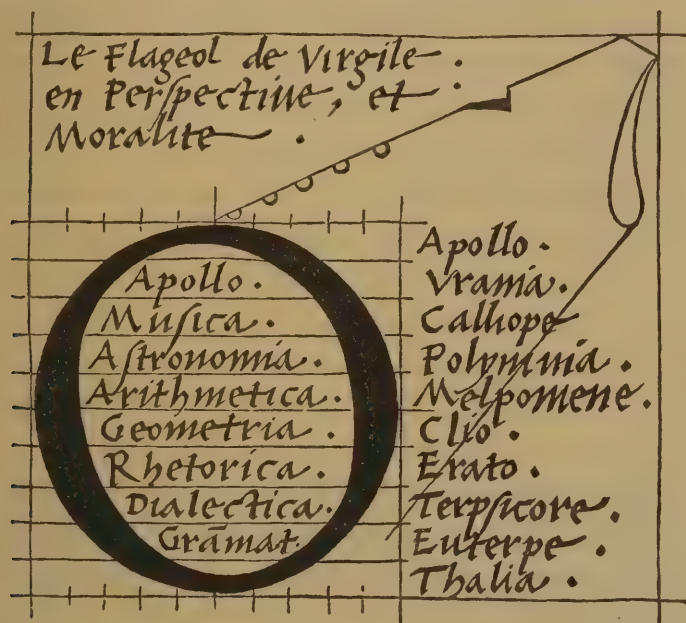 Le Flageol de Virgile .
en Perſpectiue, et :
Moralite .
Apollo .
Muſica .
Aſtronomia .
Arithmetica .
Geometria .
Rhetorica .
Dialectica .
Grãmat.
Apollo .
Vrania .
Calliope
Polymnia .
Melpomene .
Clio .
Erato .
Terpſicore .
Euterpe .
Thalia .